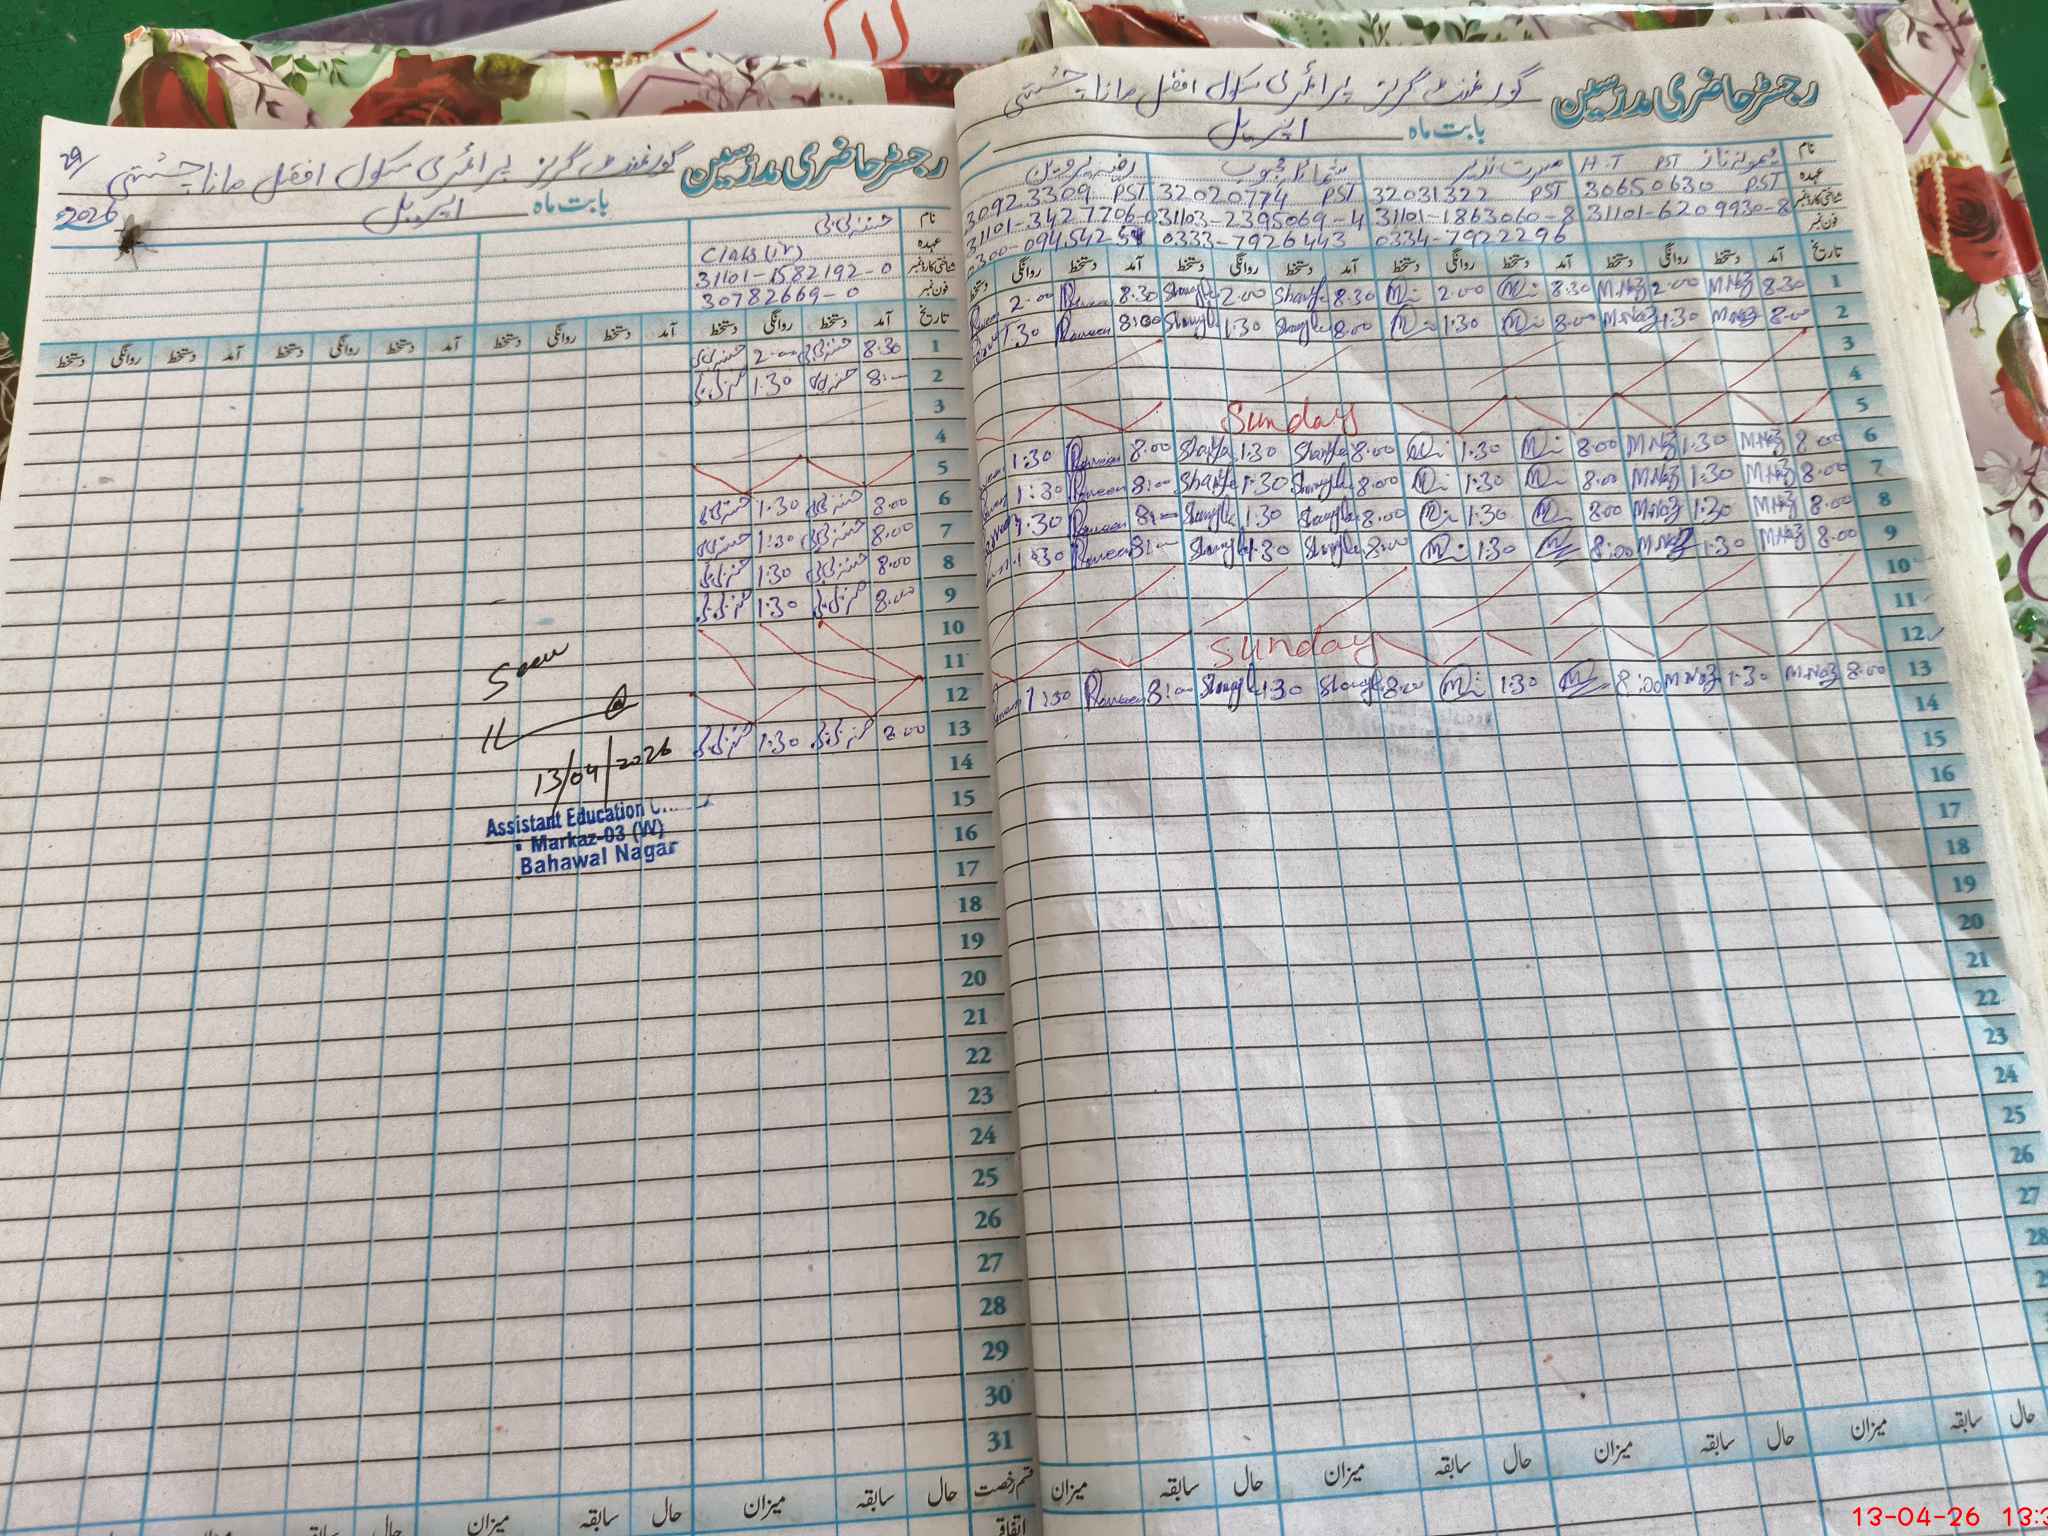 رجسٹر حاضری مدرسین گورنمنٹ گرلز پرائمری سکول افضل مانا چشتی
بابت ماہ اپریل
نام میمونہ ناز H.T PST مسرت نذیر شمائلہ محبوب رضیہ پروین
عہدہ 30650630 PST 32031322 PST 32020774 PST 30923309 PST
شناختی کارڈ نمبر 31101-6209930-8 31101-1863060-8 31103-2395069-4 31101-3427706-0
فون نمبر 0334-7922296 0333-7926443
تاریخ آمد دستخط روانگی دستخط آمد دستخط روانگی دستخط آمد دستخط روانگی دستخط آمد دستخط روانگی دستخط
1 8.30 M.Naz 2.00 M.Naz 8:30 2.00 8.30 2.00 8.30 2.00
2 8.00 M.Naz 1.30 M.Naz 8.00 1.30 8.00 1.30 8:00 1.30
3
4
5 Sunday
6 8.00 M.Naz 1.30 M.Naz 8.00 1.30 8.00 1.30 8.00 1:30
7 8.00 M.Naz 1.30 M.Naz 8.00 1.30 8.00 1.30 8:00 1:30
8 8.00 M.Naz 1.30 M.Naz 8.00 1.30 8.00 1:30 8:00 1.30
9 8.00 M.Naz 1.30 M.Naz 8:00 1:30 8.00 1.30 8:00 1:30
10
11
12 Sunday
13 8.00 M.Naz 1.30 M.Naz 8:00 1.30 8.00 1.30 8:00 1:30
14
15
16
17
18
19
20
21
22
23
24
25
26
27
28
حال سابقہ میزان حال سابقہ میزان حال سابقہ میزان حال سابقہ میزان
رجسٹر حاضری مدرسین گورنمنٹ گرلز پرائمری سکول افضل مانا چشتی 29
بابت ماہ اپریل 2026
نام
عہدہ Class (IV)
شناختی کارڈ نمبر 31101-1582192-0
فون نمبر 30782669-0
تاریخ آمد دستخط روانگی دستخط آمد دستخط روانگی دستخط آمد دستخط روانگی دستخط آمد دستخط روانگی دستخط
1 8:30 2.00
2 8:00 1.30
3
4
5
6 8.00 1.30
7 8.00 1:30
8 8.00 1:30
9 8.00 1:30
10
11
12
13 8.00 1:30
14
15
16
17
18
19
20
21
22
23
24
25
26
27
28
29
30
31
قسم رخصت حال سابقہ میزان حال سابقہ میزان حال سابقہ میزان
اتفاقی
Seen
13/04/2026
Assistant Education
Markaz-03 (W)
Bahawal Nagar
13-04-26 13:3